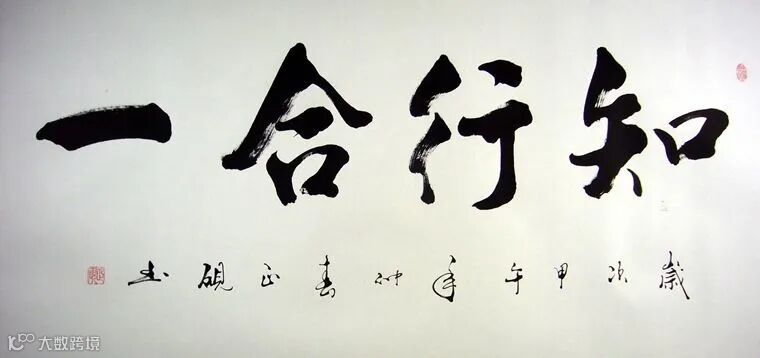 知行合一
岁次甲午年仲春正砚书
大数跨境